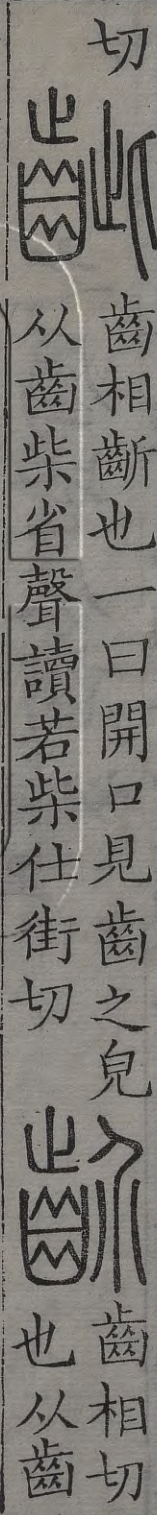 切
齜
齒相齗也一曰開口見齒之皃
从齒柴省聲讀若柴仕街切
齘
齒相切
也从齒